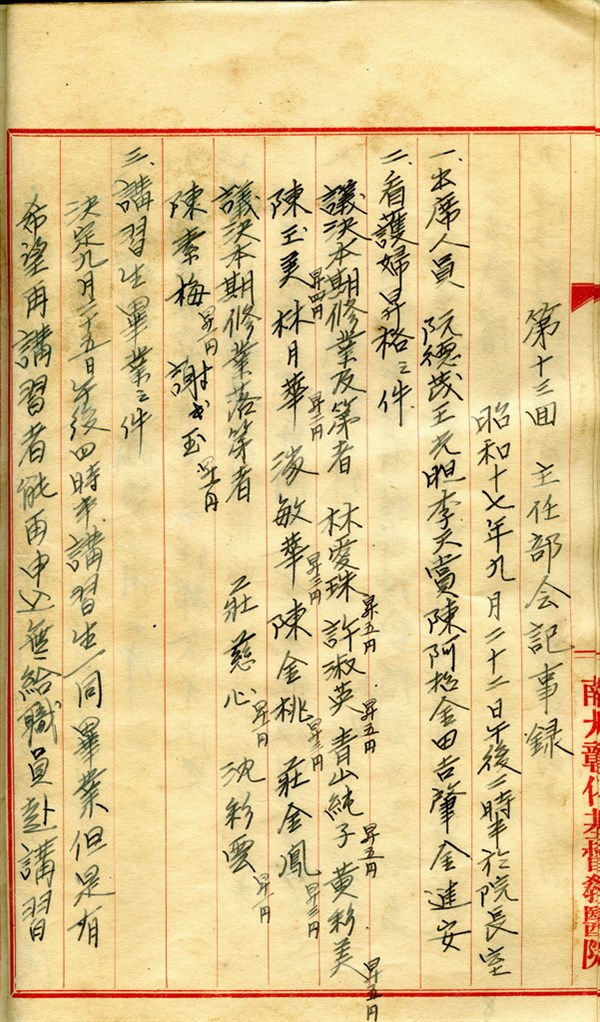 第十三回 主任部会記事録
昭和十七年九月二十二日午後二時半於院長室
一、出席人員 阮德茂王光昍李天賞陳阿松金田吉肇金漣安
二、看護婦昇格之件
議決本期修業及第者 林愛珠昇五円 許淑英昇五円 青山純子昇五円 黄彩美昇五円
陳玉美昇四円 林月華昇一円 敏華昇三円 陳金桃昇三円 莊金鳳昇三円
議決本期修業落第者 莊慈心昇一円 沈彩雲昇一円
陳素梅昇一円 謝 玉昇一円
三、講習生畢業之件
決定九月二十五日午後四時半講習生一同畢業但是有
希望再講習者能再申込無給職員赴講習
彰化基督教醫院